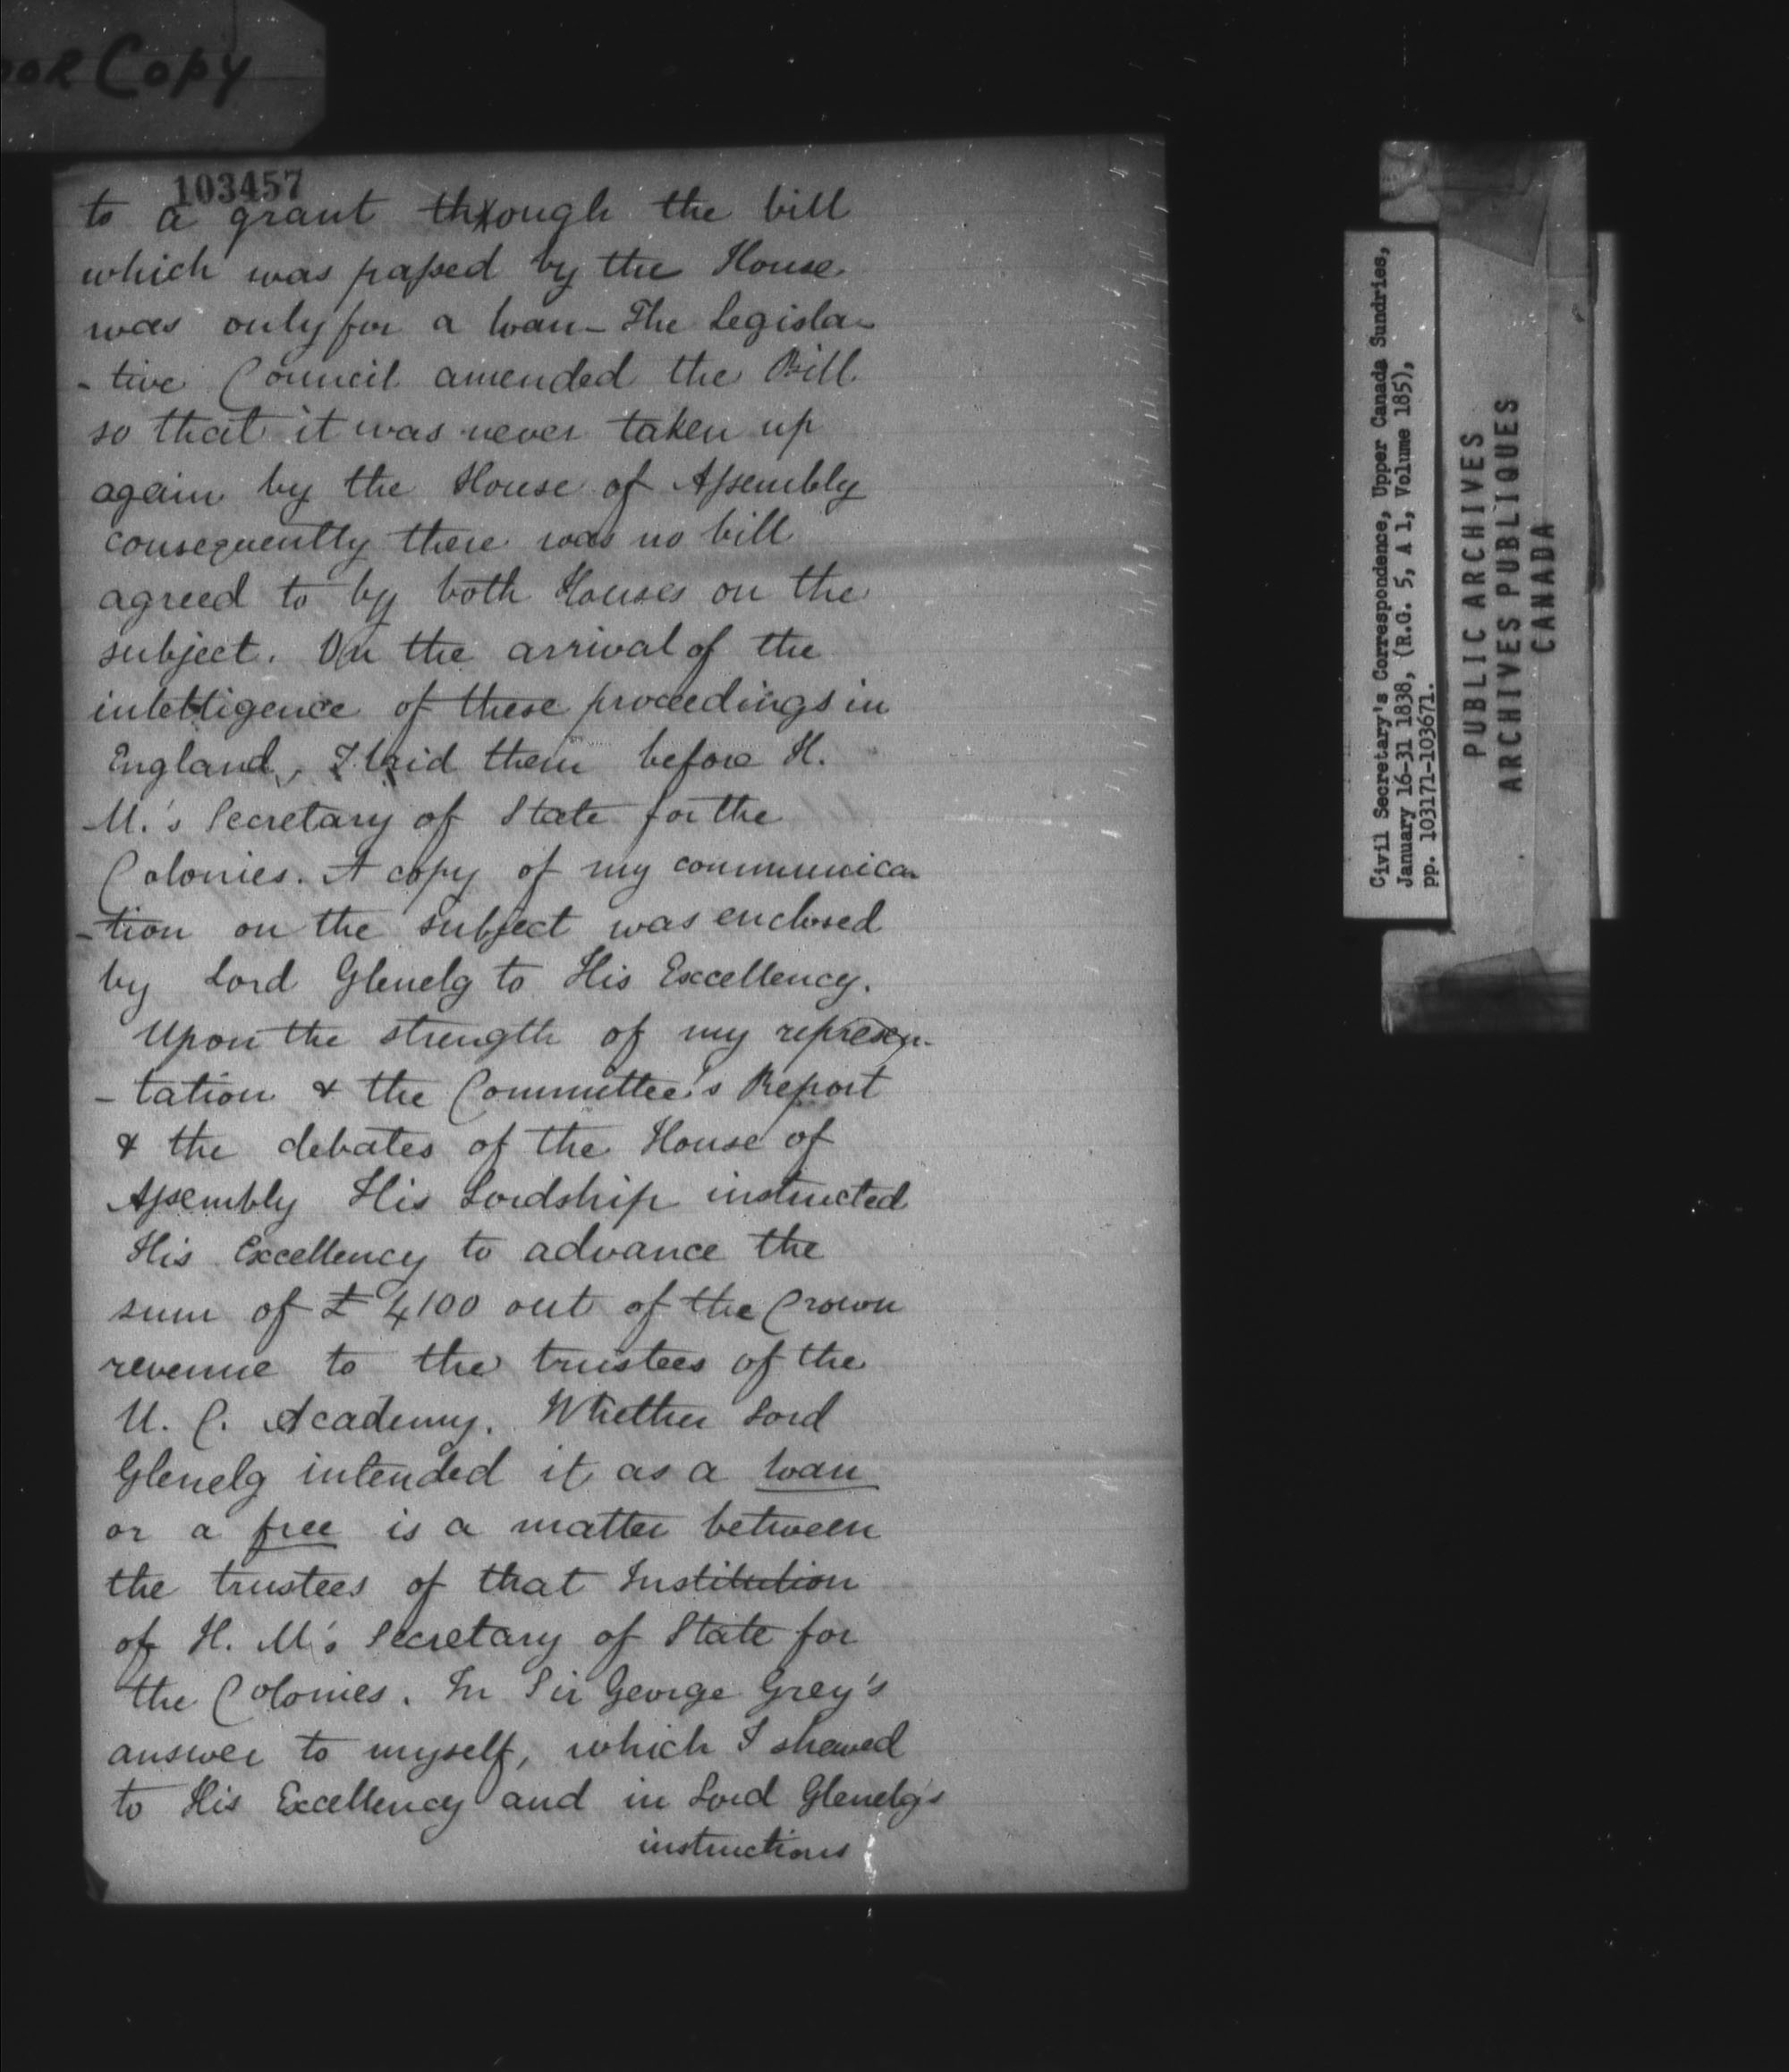 OOR COPY
103457
to a grant through the bill
which was passed by the House
was only for a loan - The Legisla-
-tive Council amended the Bill
so that it was never taken up
again by the House of Assembly
consequently there was no bill
agreed to by both Houses on the
subject. On the arrival of the
intelligence of these proceedings in
England, I laid them before H.
M.'s Secretary of State for the
Colonies. A copy of my communica-
-tion on the subject was enclosed
by Lord Glenelg to His Excellency.
Upon the strength of my represen-
-tation & the Committee's Report
& the debates of the House of
Assembly His Lordship instructed
His Excellency to advance the
sum of £4100 out of the Crown
revenue to the trustees of the
U. C. Academy. Whether Lord
Glenelg intended it as a loan
or a free is a matter between
the trustees of that Institution
of H. M.'s Secretary of State for
the Colonies. In Sir George Grey's
answer to myself, which I shewed
to His Excellency and in Lord Glenelg's
instructions
Civil Secretary's Correspondence, Upper Canada Sundries,
January 16-31 1838, (R.G. 5, A 1, Volume 185),
pp. 103171-103671.
PUBLIC ARCHIVES
ARCHIVES PUBLIQUES
CANADA